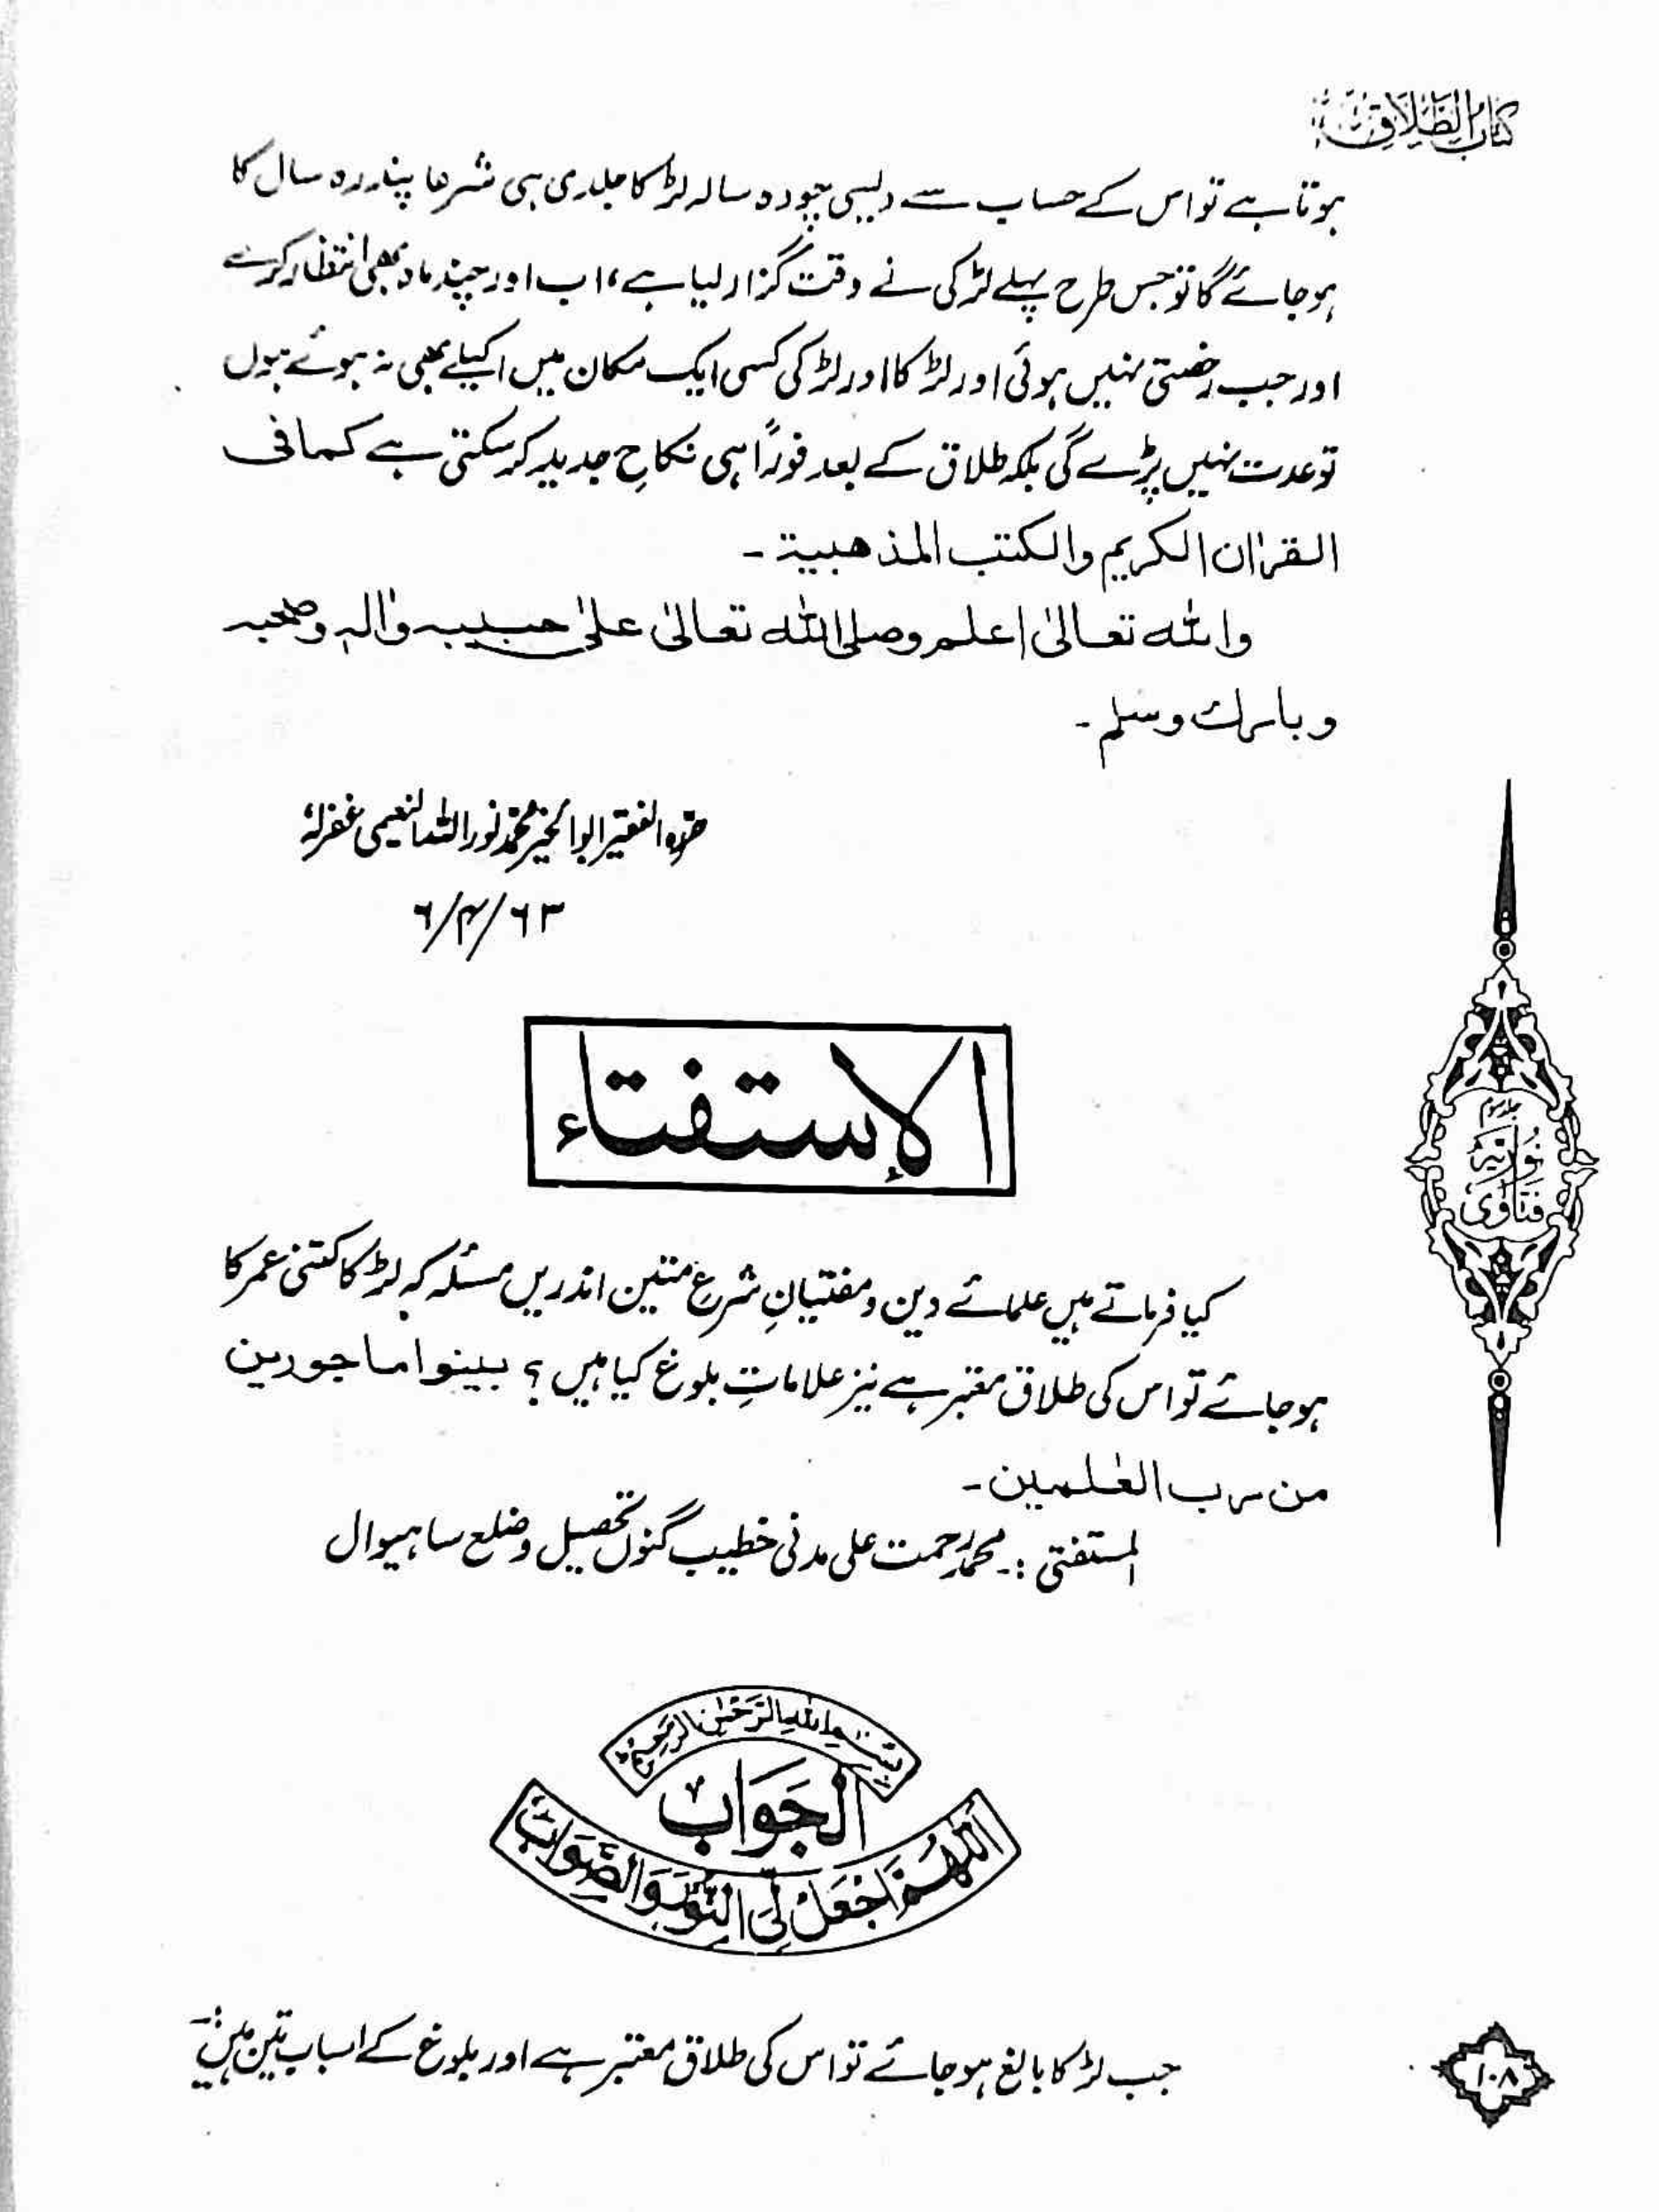 کتاب الطلاق
ہوتا ہے تو اس کے حساب سے دلیسی چودہ سالہ لڑکا جلدی ہی شرعا پندرہ سال کا
ہو جائے گا تو جس طرح پہلے لڑکی نے وقت گزار لیا ہے، اب اور چند ماہ بھی انتظار کرے
اور جب رخصتی نہیں ہوئی اور لڑکا اور لڑکی کسی ایک مکان میں اکیلے بھی نہ ہوئے ہوں
تو عدت نہیں پڑے گی بلکہ طلاق کے بعد فوراً ہی نکاحِ جدید کر سکتی ہے کما فی
القرٰان الکریم والکتب المذھبیۃ ۔
واللہ تعالیٰ اعلم وصلی اللہ تعالیٰ علیٰ حبیبہ واٰلہٖ وصحبہ
وبارک وسلم ۔
حررہ الفقیر ابوالخیر محمد نور اللہ النعیمی غفرلہٗ
۶/۴/۶۳
الاستفتاء
جلد سوم
فتاوٰی نوریہ
کیا فرماتے ہیں علمائے دین و مفتیانِ شرعِ متین اندریں مسئلہ کہ لڑکا کتنی عمر کا
ہو جائے تو اس کی طلاق معتبر ہے نیز علاماتِ بلوغ کیا ہیں ؟ بینوا ماجورین
من رب العٰلمین ۔
المستفتی :۔ محمد رحمت علی مدنی خطیب گنول تحصیل و ضلع ساہیوال
بسم اللہ الرحمٰن الرحیم
الجواب
اَللّٰھُمَّ اجْعَلْ لِیَ النُّوْرَ وَالصَّوَابَ
جب لڑکا بالغ ہو جائے تو اس کی طلاق معتبر ہے اور بلوغ کے اسباب تین ہیں :۔
۱۰۸